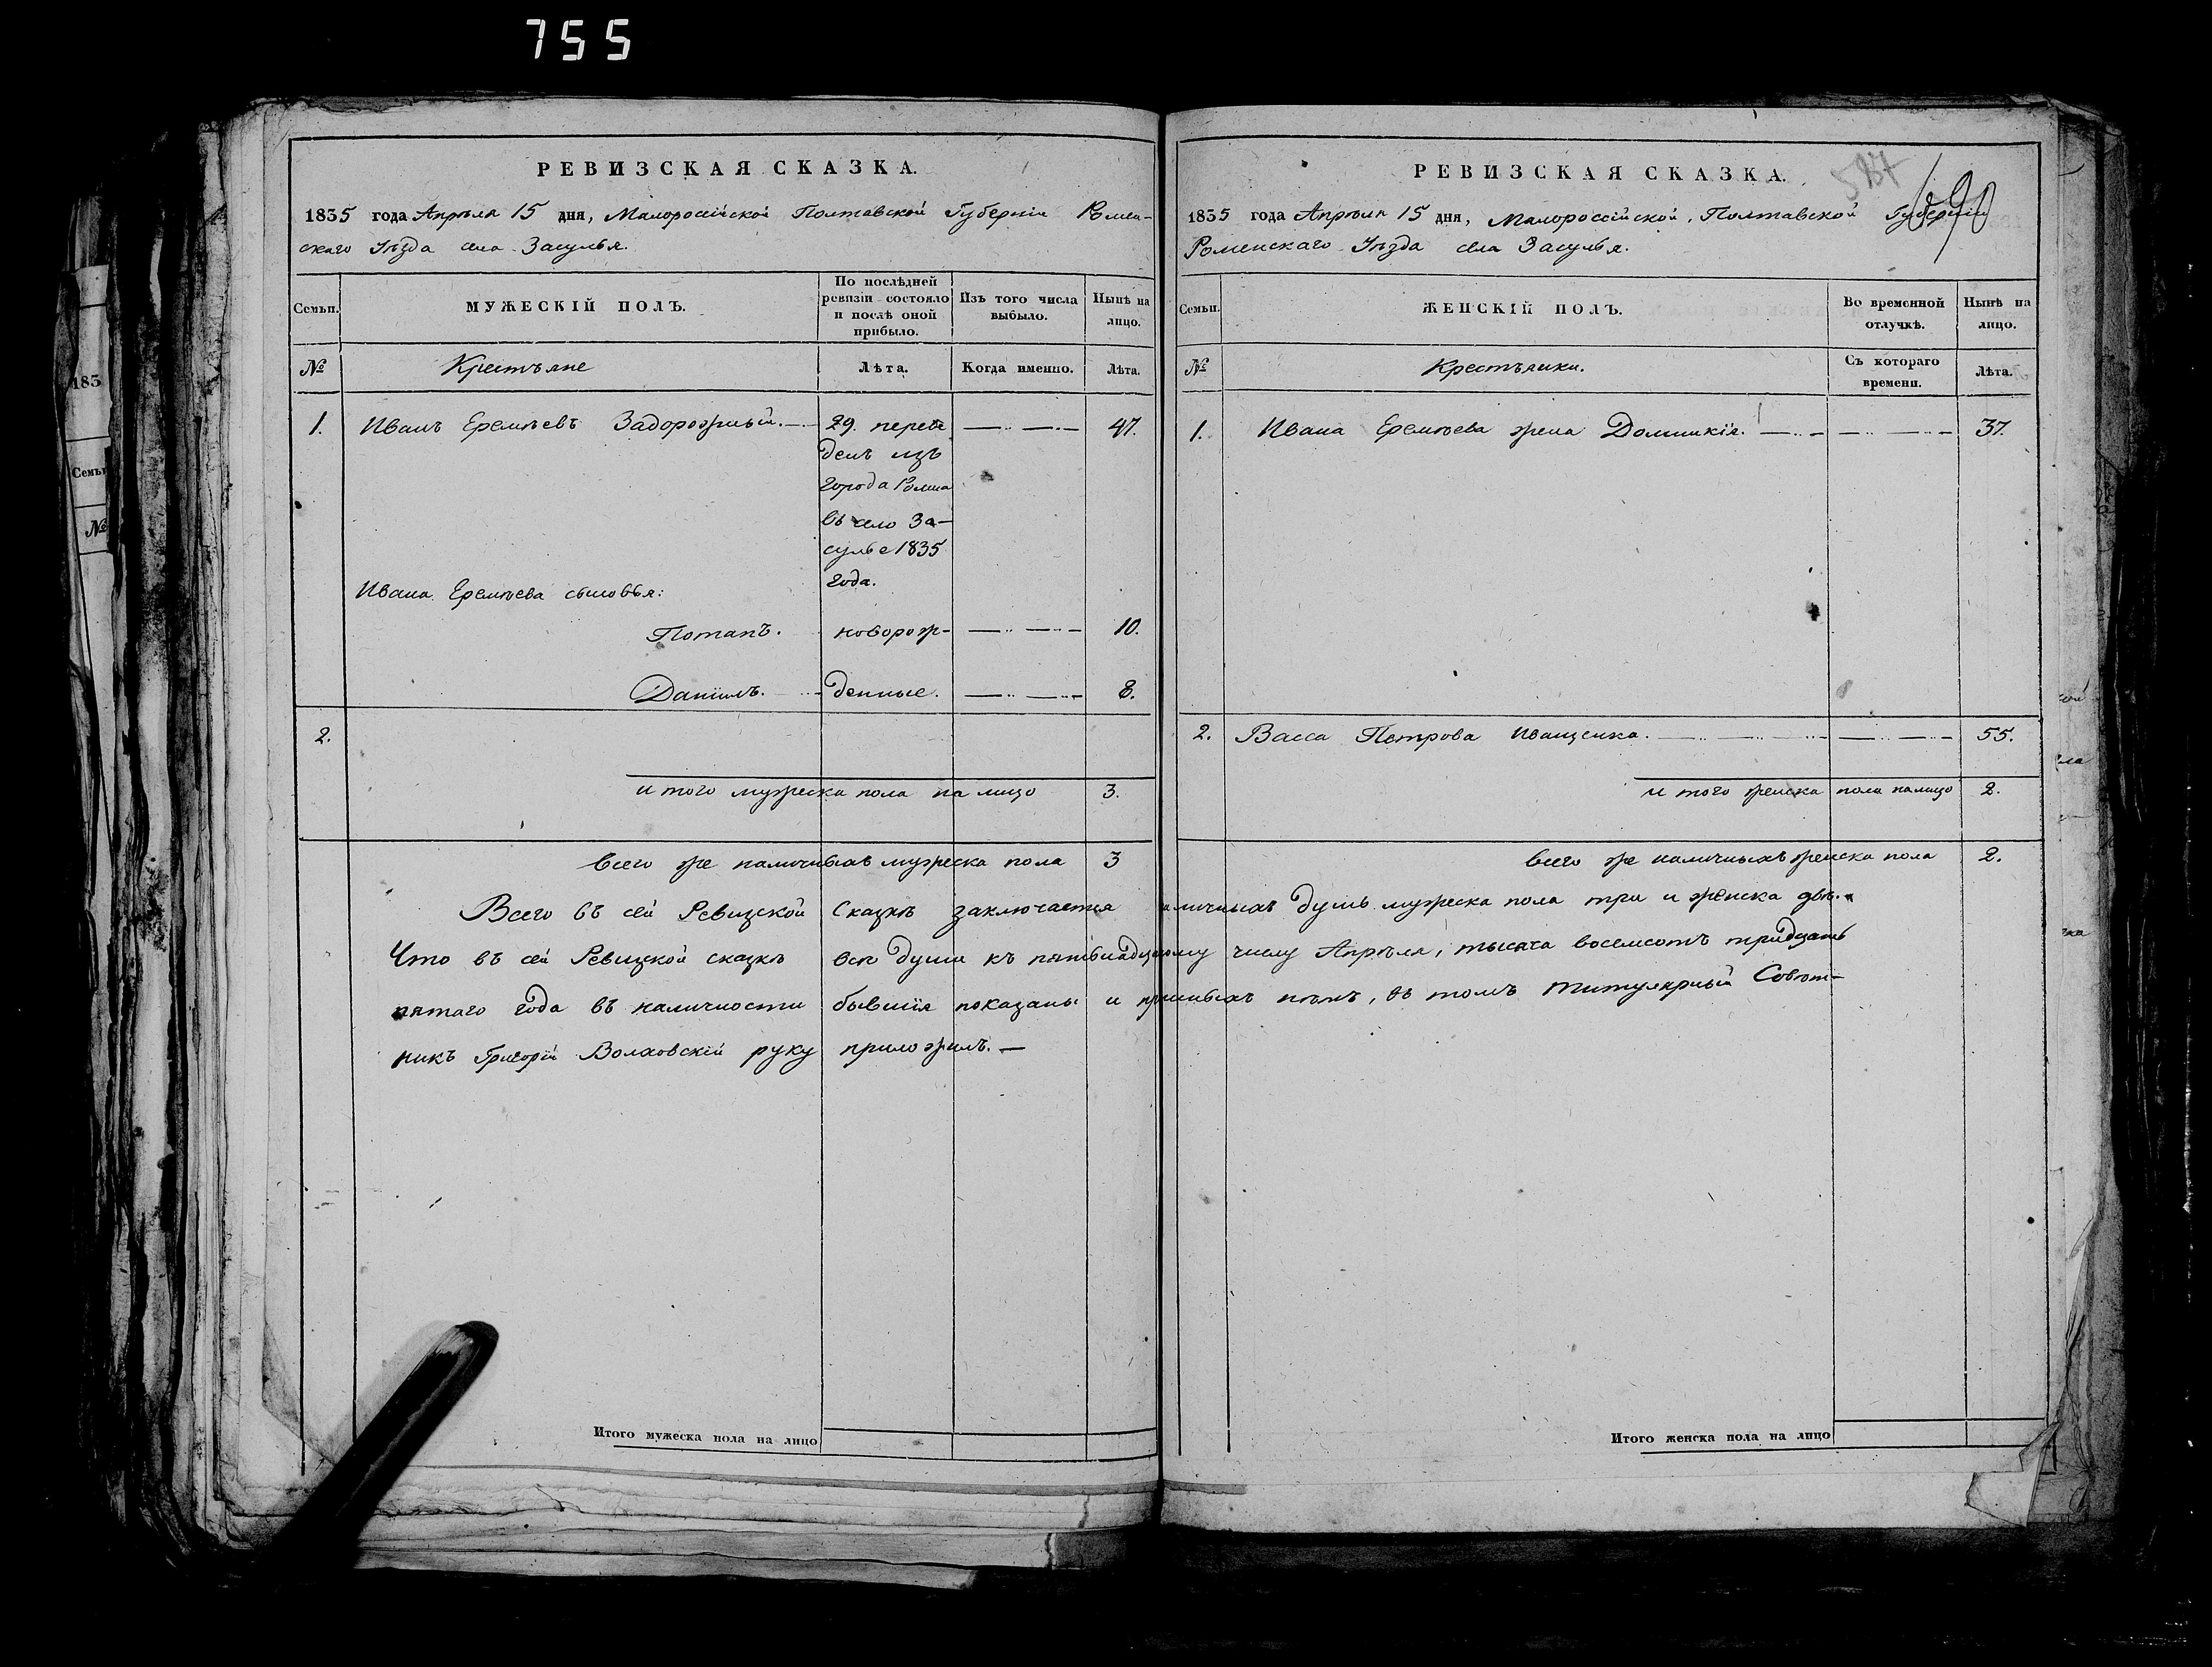 755
РЕВИЗСКАЯ СКАЗКА.
1835 года Апрѣля 15 дня, Малороссійской Полтавской Губерніи Ромен-
скаго Уѣзда села Засулья.
Семьи.
МУЖЕСКІЙ ПОЛЪ.
По послѣдней ревизіи состояло и послѣ оной прибыло.
Изъ того числа выбыло.
Нынѣ на лицо.
№ Крестьяне Лѣта. Когда именно. Лѣта.
1. Иванъ Еремѣевъ Задорожный. 29. переве 47.
денъ изъ
города Ромна
въ село За-
сулье 1835
года.
Ивана Еремѣева сыновья:
Потапъ. новорож- 10.
Данiилъ. денные. 8.
2.
и того мужеска пола на лицо 3.
всего же наличныхъ мужеска пола 3
РЕВИЗСКАЯ СКАЗКА.
587
690
1835 года Апрѣля 15 дня, Малороссійской, Полтавской Губерніи
Роменскаго Уѣзда села Засулья.
Семьи.
ЖЕНСКІЙ ПОЛЪ.
Во временной отлучкѣ.
Нынѣ на лицо.
№ Крестьянки. Съ котораго времени. Лѣта.
1. Ивана Еремѣева жена Домникія. 37.
2. Васса Петрова Иващенка. 55.
и того женска пола налицо 2.
всего же наличныхъ женска пола 2.
Всего въ сей Ревизской Сказкѣ заключается наличныхъ душъ мужеска пола три и женска двѣ.
Что въ сей Ревизской сказкѣ всѣ души къ пятьнадцатому числу Апрѣля, тысяча восемсотъ тридцать
пятаго года въ наличности бывшія показаны и прописныхъ нѣтъ, въ томъ титулярный Совѣт-
никъ Григорій Волховскій руку приложилъ.
Итого мужеска пола на лицо
Итого женска пола на лицо
183
Семьи
№